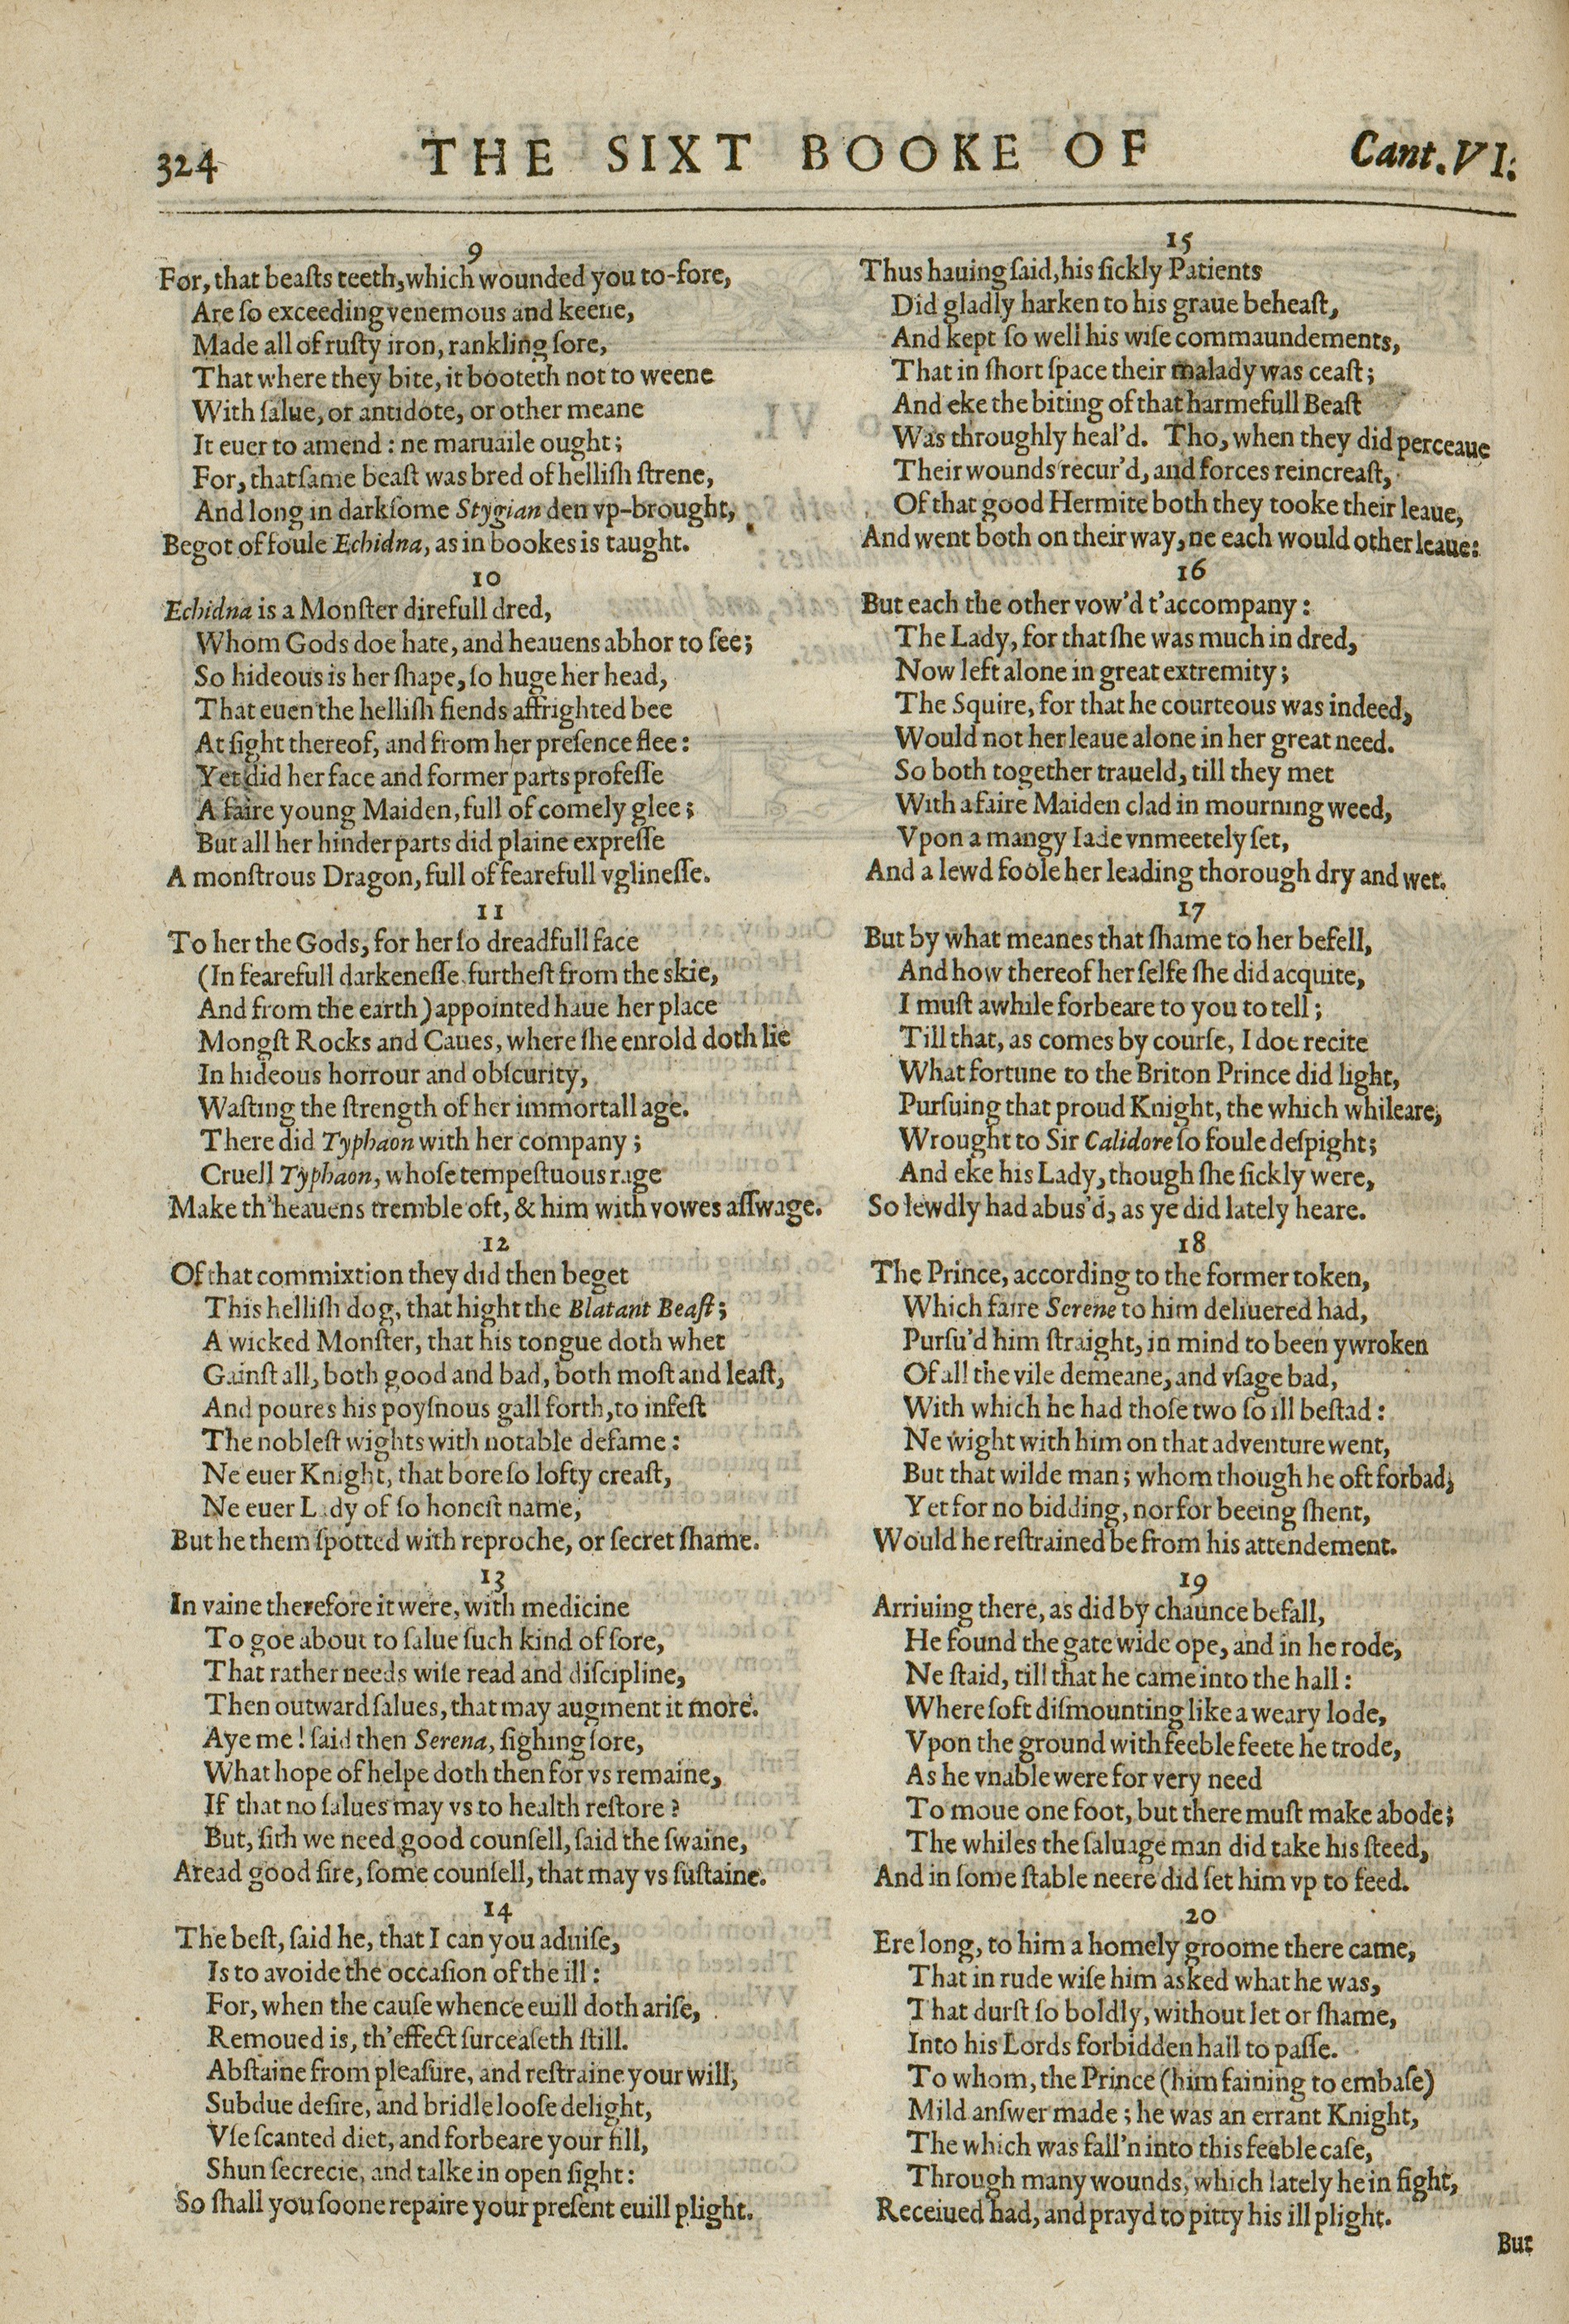 324 THE SIXT BOOKE OF Cant. VI.
9
For, that beaſts teeth, which wounded you to-fore,
Are ſo exceeding venemous and keene,
Made all of ruſty iron, rankling ſore,
That where they bite, it booteth not to weene
With ſalue, or antidote, or other meane
It euer to amend : ne maruaile ought;
For, that ſame beaſt was bred of helliſh ſtrene,
And long in darkſome Stygian den vp-brought,
Begot of foule Echidna, as in bookes is taught.
10
Echidna is a Monſter direfull dred,
Whom Gods doe hate, and heauens abhor to ſee;
So hideous is her ſhape, ſo huge her head,
That euen the helliſh fiends affrighted bee
At ſight thereof, and from her preſence flee:
Yet did her face and former parts profeſſe
A faire young Maiden, full of comely glee;
But all her hinder parts did plaine expreſſe
A monſtrous Dragon, full of fearefull vglineſſe.
11
To her the Gods, for her ſo dreadfull face
(In fearefull darkeneſſe furtheſt from the skie,
And from the earth) appointed haue her place
Mongſt Rocks and Caues, where ſhe enrold doth lie
In hideous horrour and obſcurity,
Waſting the ſtrength of her immortall age.
There did Typhaon with her company;
Cruell Typhaon, whoſe tempeſtuous rage
Make th'heauens tremble oft, & him with vowes aſſwage.
12
Of that commixtion they did then beget
This helliſh dog, that hight the Blatant Beaſt;
A wicked Monſter, that his tongue doth whet
Gainſt all, both good and bad, both moſt and leaſt,
And poures his poyſnous gall forth, to infeſt
The nobleſt wights with notable defame:
Ne euer Knight, that bore ſo lofty creaſt,
Ne euer Lady of ſo honeſt name,
But he them ſpotted with reproche, or ſecret ſhame.
13
In vaine therefore it were, with medicine
To goe about to ſalue ſuch kind of ſore,
That rather needs wiſe read and diſcipline,
Then outward ſalues, that may augment it more.
Aye me! ſaid then Serena, ſighing ſore,
What hope of helpe doth then for vs remaine,
If that no ſalues may vs to health reſtore?
But, ſith we need good counſell, ſaid the ſwaine,
Aread good ſire, ſome counſell, that may vs ſuſtaine.
14
The beſt, ſaid he, that I can you aduiſe,
Is to avoide the occaſion of the ill:
For, when the cauſe whence euill doth ariſe,
Remoued is, th'effect ſurceaſeth ſtill.
Abſtaine from pleaſure, and reſtraine your will,
Subdue deſire, and bridle looſe delight,
Vſe ſcanted diet, and forbeare your fill,
Shun ſecrecie, and talke in open ſight:
So ſhall you ſoone repaire your preſent euill plight.
15
Thus hauing ſaid, his ſickly Patients
Did gladly harken to his graue beheaſt,
And kept ſo well his wiſe commaundements,
That in ſhort ſpace their malady was ceaſt;
And eke the biting of that harmefull Beaſt
Was throughly heal'd. Tho, when they did perceaue
Their wounds recur'd, and forces reincreaſt,
Of that good Hermite both they tooke their leaue,
And went both on their way, ne each would other leaue:
16
But each the other vow'd t'accompany:
The Lady, for that ſhe was much in dred,
Now left alone in great extremity;
The Squire, for that he courteous was indeed,
Would not her leaue alone in her great need.
So both together traueld, till they met
With a faire Maiden clad in mourning weed,
Vpon a mangy Iade vnmeetely ſet,
And a lewd foole her leading thorough dry and wet.
17
But by what meanes that ſhame to her befell,
And how thereof her ſelfe ſhe did acquite,
I muſt awhile forbeare to you to tell;
Till that, as comes by courſe, I doe recite
What fortune to the Briton Prince did light,
Purſuing that proud Knight, the which whileare,
Wrought to Sir Calidore ſo foule deſpight;
And eke his Lady, though ſhe ſickly were,
So lewdly had abus'd, as ye did lately heare.
18
The Prince, according to the former token,
Which faire Serene to him deliuered had,
Purſu'd him ſtraight, in mind to been ywroken
Of all the vile demeane, and vſage bad,
With which he had thoſe two ſo ill beſtad:
Ne wight with him on that adventure went,
But that wilde man; whom though he oft forbad,
Yet for no bidding, nor for beeing ſhent,
Would he reſtrained be from his attendement.
19
Arriuing there, as did by chaunce befall,
He found the gate wide ope, and in he rode,
Ne ſtaid, till that he came into the hall:
Where ſoft diſmounting like a weary lode,
Vpon the ground with feeble feete he trode,
As he vnable were for very need
To moue one foot, but there muſt make abode;
The whiles the ſaluage man did take his ſteed,
And in ſome ſtable neere did ſet him vp to feed.
20
Ere long, to him a homely groome there came,
That in rude wiſe him asked what he was,
That durſt ſo boldly, without let or ſhame,
Into his Lords forbidden hall to paſſe.
To whom, the Prince (him faining to embaſe)
Mild anſwer made; he was an errant Knight,
The which was fall'n into this feeble caſe,
Through many wounds, which lately he in fight,
Receiued had, and prayd to pitty his ill plight.
But